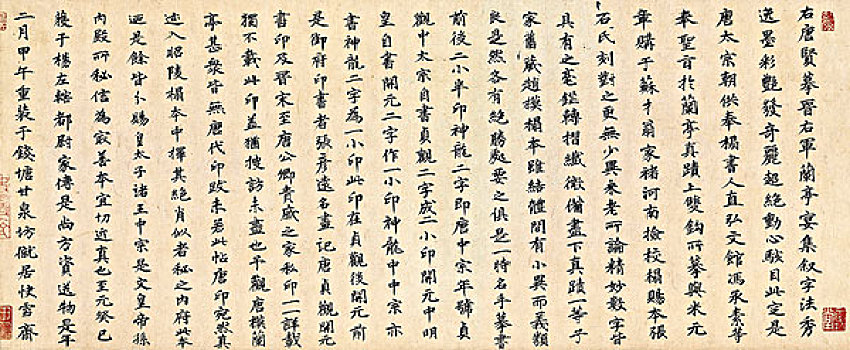 右唐賢摹晉右軍蘭亭宴集叙字法秀
逸墨彩艷發奇麗超絕動心駭目此定是
唐太宗朝供奉榻書人直弘文館馮承素等
奉聖旨於蘭亭真蹟上雙鉤所摹與米元
章購于蘇才翁家褚河南檢校榻賜本張
石氏刻對之更無少異米老所論精妙數字皆
具有之毫鋩轉摺纖微備盡下真蹟一等予
家舊藏趙模榻本雖結體間有小異而義類
良是然各有絕勝處要之俱是一時名手摹書
前後二小半印神龍二字即唐中宗年號貞
觀中太宗自書貞觀二字成二小印開元中明
皇自書開元二字作一小印神龍中中宗亦
書神龍二字為一小印此印在貞觀後開元前
是御府印書者張彥遠名畫記唐貞觀開元
書印及晉宋至唐公卿貴戚之家私印一一詳載
獨不載此印蓋猶搜訪未盡也予觀唐模蘭
亭甚衆皆無唐代印跋未若此帖唐印宛然真
迹入昭陵榻本中擇其絕肖似者秘之內府此本
迺是餘皆分賜皇太子諸王中宗是文皇帝孫
內殿所秘信為最善本宜切近真也至元癸巳
獲于楊左轄都尉家傳是尚方資送物是年
二月甲午重裝于錢塘甘泉坊僦居快雪齋